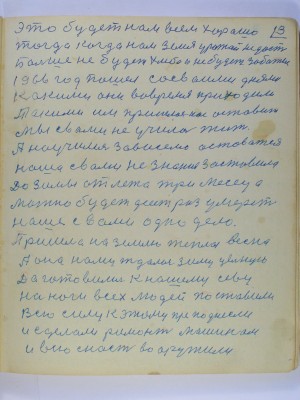 Это будет нам всем хорашо 13
тогда когда нам Земля урожай недасть
больше не будет Хлеба и небудет Заботы
1966 год пошел сосвоими днями
Какими они вовремя приходили
Такими им пришлось оставить
мы свами не учила жит.
А научила Зависемо оставатся
наша свами не знания Заставила
До Зимы от лета три месеца
можно будет дест раз умереть
наше свами одно дело.
Пришла на землю тепла весна
А она нам ждала Зиму
Да готовился К нашему севу
На ноги всех людей поставили
Всю силу К этому преподнесли
и сделали ремонт машинам
и всю снаст во оружили